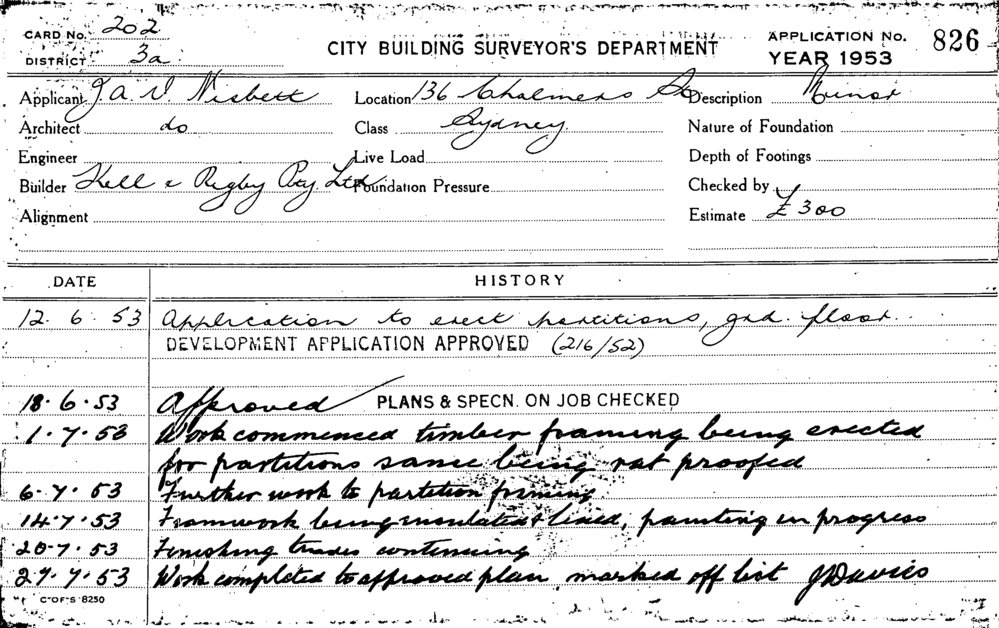 CARD No. 202
DISTRICT 3a
CITY BUILDING SURVEYOR'S DEPARTMENT
APPLICATION No. 826
YEAR 1953
Applicant J. A. V. Nisbett
Location 136 Chalmers St
Description Minor
Architect do
Class Sydney
Nature of Foundation
Engineer
Live Load
Depth of Footings
Builder Kell & Rigby Pty Ltd
Foundation Pressure
Checked by
Alignment
Estimate £ 300
DATE HISTORY
12. 6. 53 Application to erect partitions, grd. floor.
DEVELOPMENT APPLICATION APPROVED (216/52)
18. 6. 53 Approved PLANS & SPECN. ON JOB CHECKED
1. 7. 53 Work commenced timber framing being erected
for partitions same being rat proofed
6. 7. 53 Further work to partition framing
14. 7. 53 Framwork being insulated & lined, painting in progress
20. 7. 53 Finishing trades continuing
27. 7. 53 Work completed to approved plan marked off list J Davies
C OF S 8250